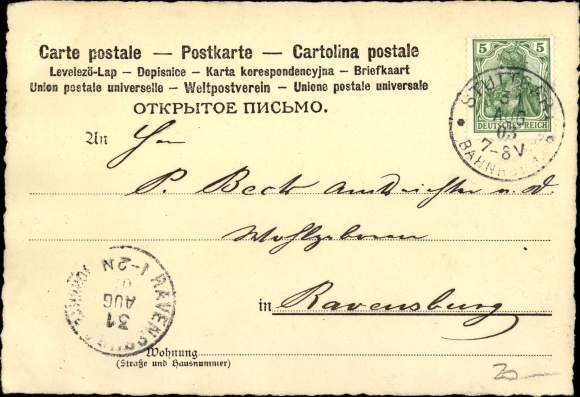 Carte postale — Postkarte — Cartolina postale
Levelező-Lap — Dopisnice — Karta korespondencyjna — Briefkaart
Union postale universelle — Weltpostverein — Unione postale universale
ОТКРЫТОЕ ПИСЬМО.
5 5
DEUTSCHES REICH
STUTTGART
AUG
05
7-8V
BAHNHOF
An Herrn
P. Beck Amtsrichter a. D.
Wohlgeboren
in Ravensburg
RAVENSBURG
31
AUG
1-2N
Wohnung
(Straße und Hausnummer)